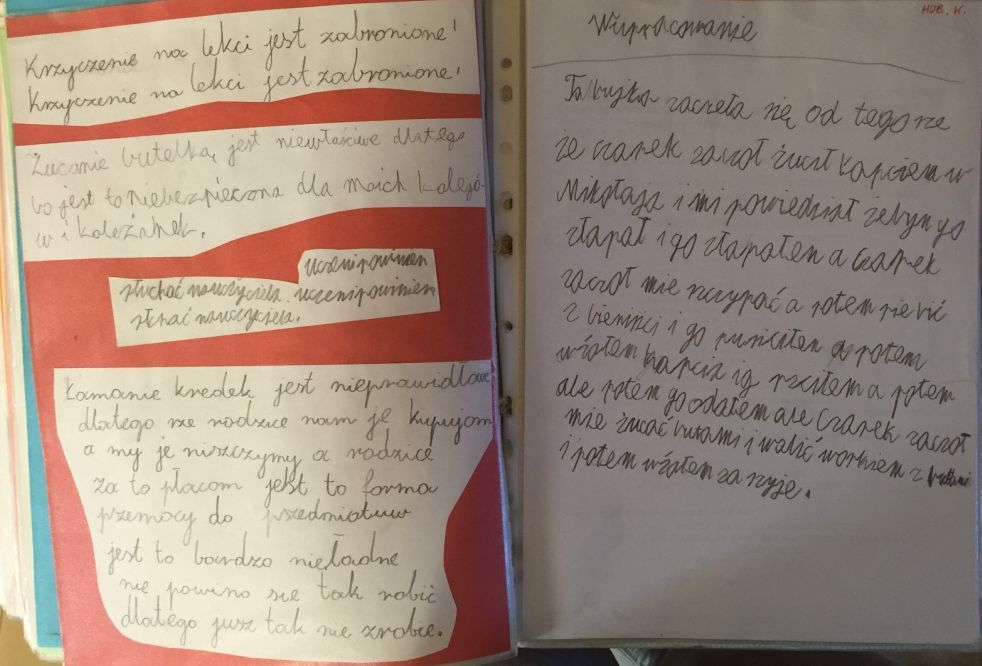 Krzyczenie na lekci jest zabronione!
Krzyczenie na lekci jest zabronione!
Żucanie butelką jest niewłaściwe dlatego
bo jest to niebezpieczona dla moich kolegó-
w i koleżanek.
Uczeń powinien
słuchać nauczyciela. uczeń powinien
słuchać nauczyciela.
Łamanie kredek jest nieprawidłowe
dlatego rze rodzice nam je kupujom
a my je niszczymy a rodzice
za to płacom jest to forma
przemocy do przedmiotuw
jest to bardzo nieładne
nie powino sie tak robić
dlatego jusz tak nie zrobie.
HUB. K.
Wypracowanie
Ta bujka zaczeła się od tego rze
że czarek zaczoł żucił kapciem w
Mikołaja i mi powiedział żebym go
złapał i go złapałem a czarek
zaczoł mie szczypać a potem sie bić
z i go pusciłem a potem
wźołem kapcia i go rzciłem a potem
ale potem go odałem ale Czarek zaczoł
mie żucać butami i walić workiem z butami
i potem wźołem za szyje.